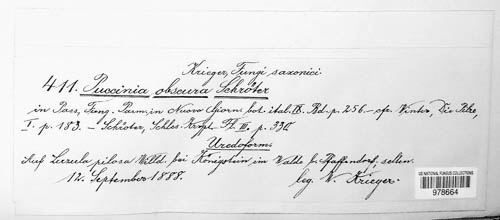 Krieger, Fungi saxonici.
411. Puccinia obscura Schröter
in Pass, Fung. Parm. in Nuovo Giorn. bot. ital. IX. Bd. p. 256 – cfr. Winter, Die Pilze,
I. p. 183. – Schröter, Schles. Krypt. Fl. III. p.
Uredoform.
Auf Luzula pilosa Willd. bei Königstein im Walde b. Pfaffendorf, selten.
12. September 1888.
leg. W. Krieger.
US NATIONAL FUNGUS COLLECTIONS
978664